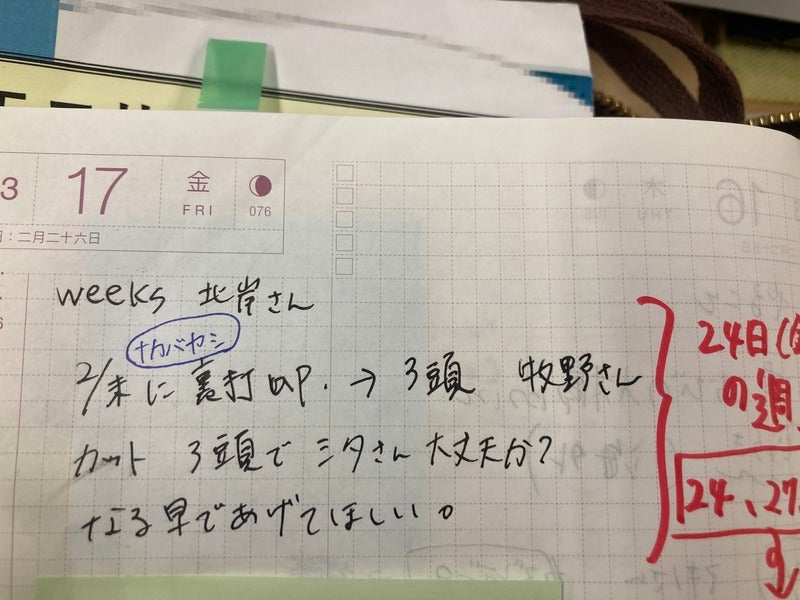 3 17 金 FRI 076
日：二月二十六日
weeks 北岸さん
ナカバヤシ
2/末に裏打UP. → 3頭 牧野さん
カット 3頭で ミタさん 大丈夫か?
なる早であげてほしい。
24日(金
の週
24、27
16 木 THU